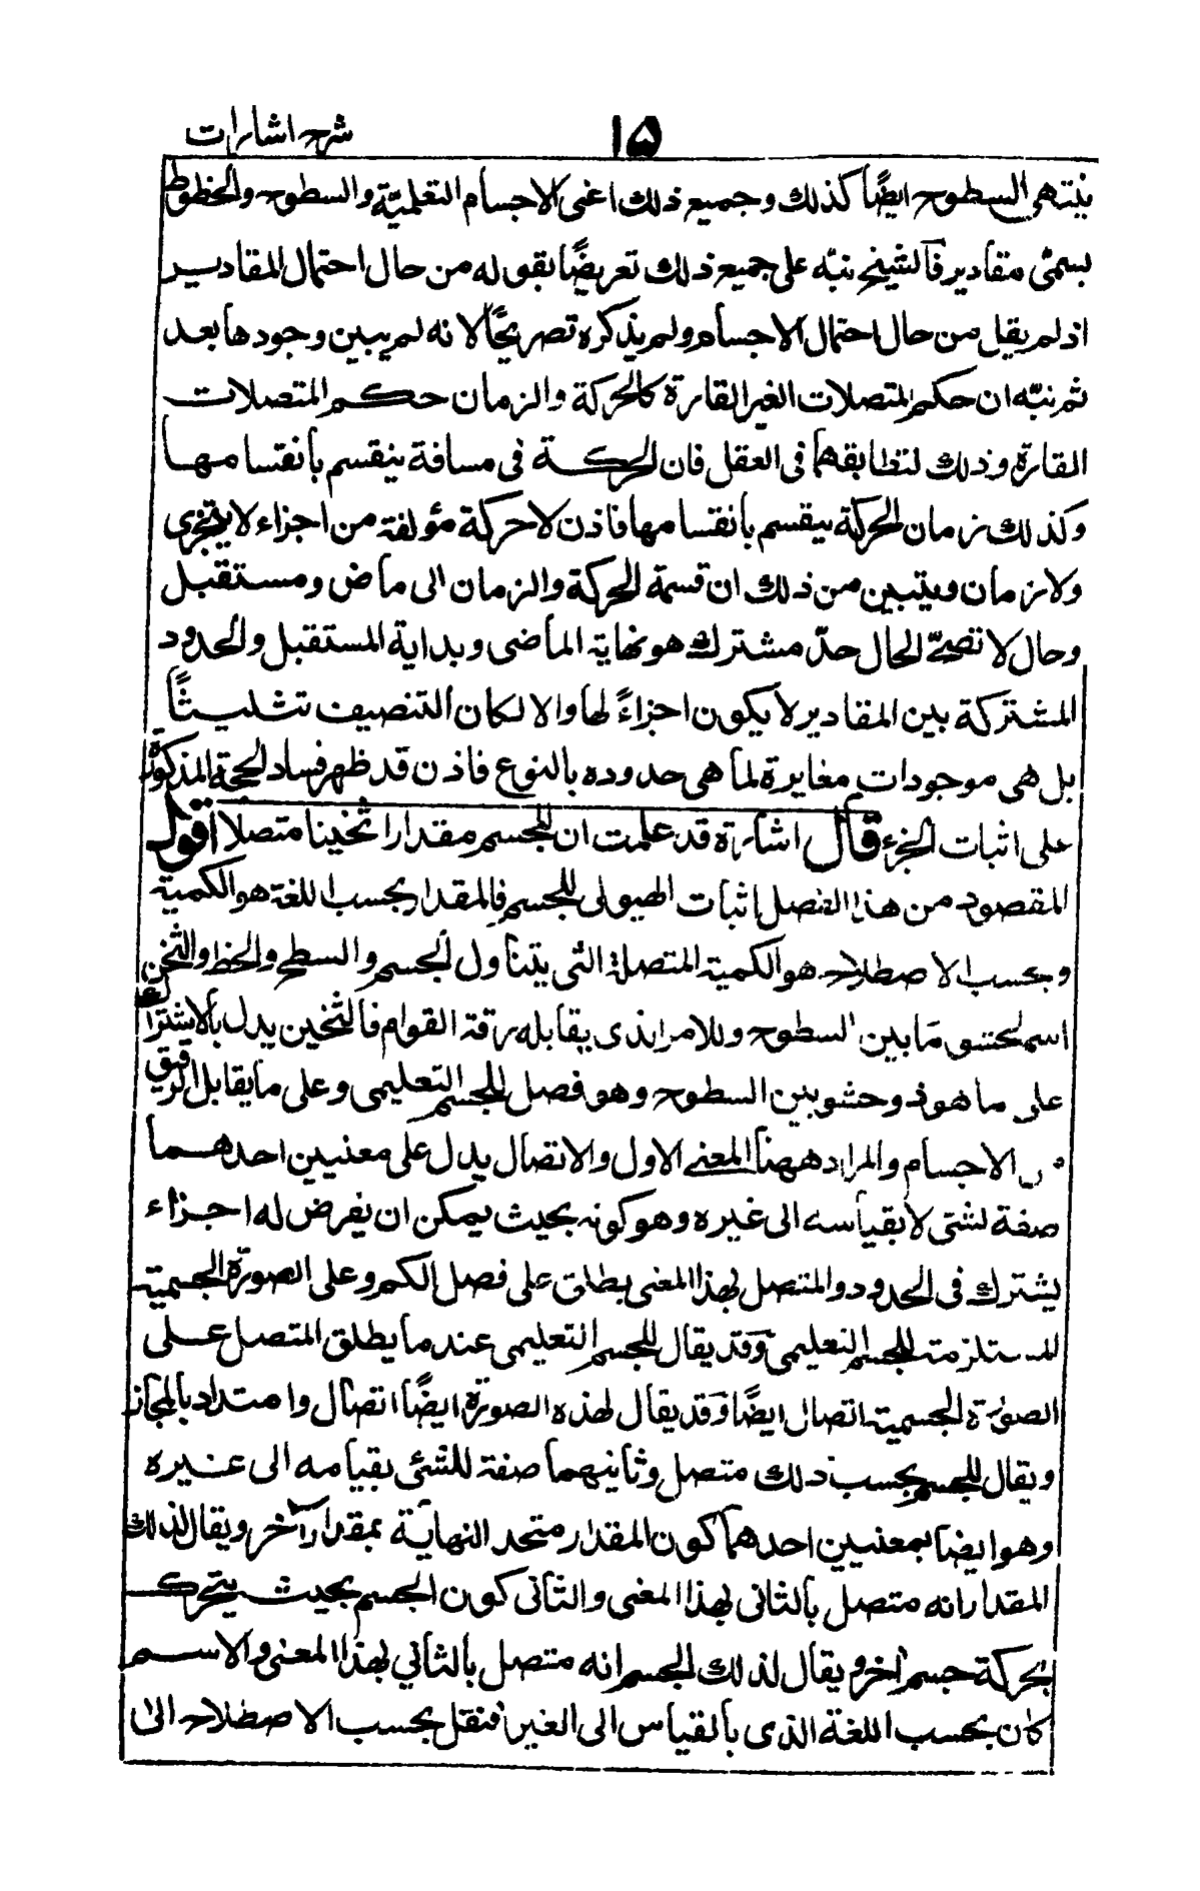 ١٥ شرح اشارات
ينتهى السطوح ايضًا كذلك وجميع ذلك اعنى الاجسام التعليميّة والسطوح والخطوط
يسمّى مقادير فالشيخ نبّه على جميع ذلك تعريضًا بقوله من حال احتمال المقادير
اذ لم يقل من حال احتمال الاجسام ولم يذكره تصريحًا لانه لم يبين وجودها بعد
ثم نبّه ان حكم المتصلات الغير القارة كالحركة والزمان حكم المتصلات
القارة وذلك لتطابقهما فى العقل فان الحركة فى مسافة ينقسم بانقسامها
وكذلك زمان الحركة ينقسم بانقسامها فاذن لا حركة مؤلفة من اجزاء لا يتجزى
ولا زمان ويتبين من ذلك ان قسمة الحركة والزمان الى ماض ومستقبل
وحال لا تصحّ الحال حدّ مشترك هو نهاية الماضى وبداية المستقبل والحدود
المشتركة بين المقادير لا يكون اجزاءً لها والا لكان التنصيف تثليثًا
بل هى موجودات مغايرة لما هى حدوده بالنوع فاذن قد ظهر فساد الحجة المذكورة
على اثبات الجزء قال اشارة قد علمت ان للجسم مقدارا ثخينا متصلا اقول
المقصود من هذا الفصل اثبات الهيولى للجسم فالمقدار بحسب اللغة هو الكمية
وبحسب الاصطلاح هو الكمية المتصلة التى يتناول الجسم والسطح والخط والثخن
اسم لحشو ما بين السطوح وللامر الذى يقابله رقة القوام فالثخين يدل بالاشتراك
على ما هو ذو حشو بين السطوح وهو فصل للجسم التعليمى وعلى ما يقابل الرقيق
من الاجسام والمراد ههنا المعنى الاول والاتصال يدل على معنيين احدهما
صفة لشئ لا بقياسه الى غيره وهو كونه بحيث يمكن ان يفرض له اجزاء
يشترك فى الحدود والمتصل بهذا المعنى يطلق على فصل الكم وعلى الصورة الجسمية
المستلزمة للجسم التعليمى وقد يقال للجسم التعليمى عند ما يطلق المتصل على
الصورة الجسمية اتصال ايضًا وقد يقال لهذه الصورة ايضًا اتصال وامتداد بالمجاز
ويقال للجسم بحسب ذلك متصل وثانيهما صفة للشئ بقياسه الى غيره
وهو ايضا بمعنيين احدهما كون المقدار متحد النهاية بمقدار آخر ويقال لذلك
المقدار انه متصل بالثانى بهذا المعنى والثانى كون الجسم بحيث يتحرك
بحركة جسم آخر ويقال لذلك الجسم انه متصل بالثانى بهذا المعنى والاسم
كان بحسب اللغة الذى بالقياس الى الغير فنقل بحسب الاصطلاح الى